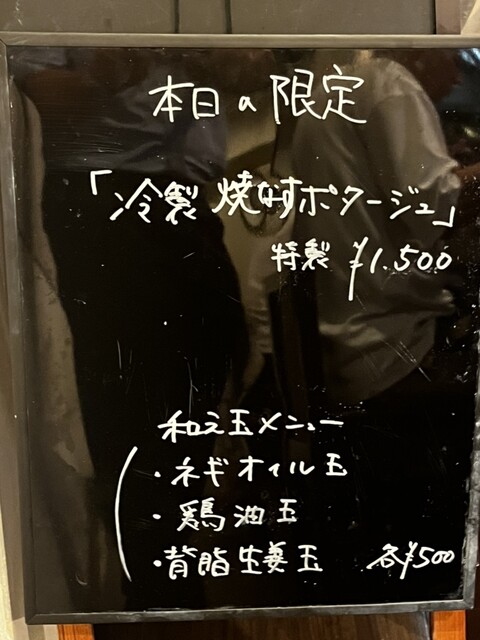 本日の限定
「冷製 焼なすポタージュ」
特製 ¥1.500
和え玉メニュー
・ネギオイル玉
・鶏油玉
・背脂生姜玉 各¥500